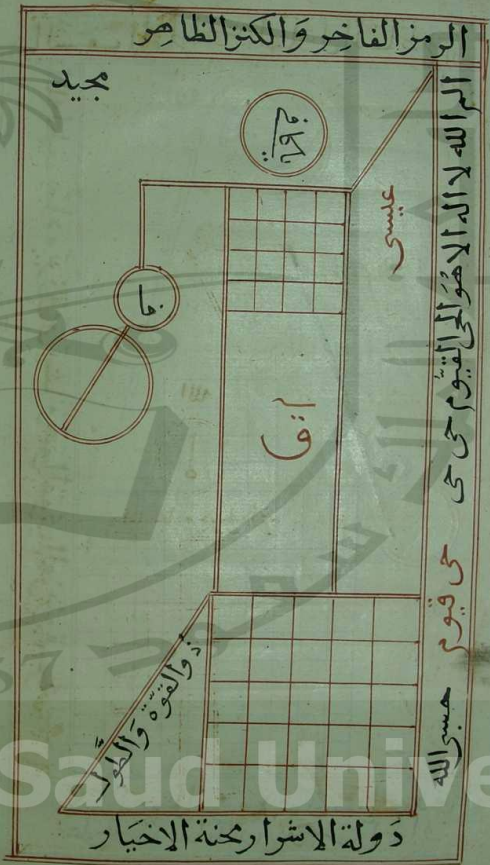 الرمز الفاخر والكنز الظاهر
مجيد
الم الله لا اله الا هو الحي القيوم حى حى حى قيوم حسبى الله
عيسى
فا
ذو القوة والطول
دولة الاشرار محنة الاخيار
Saud Unive